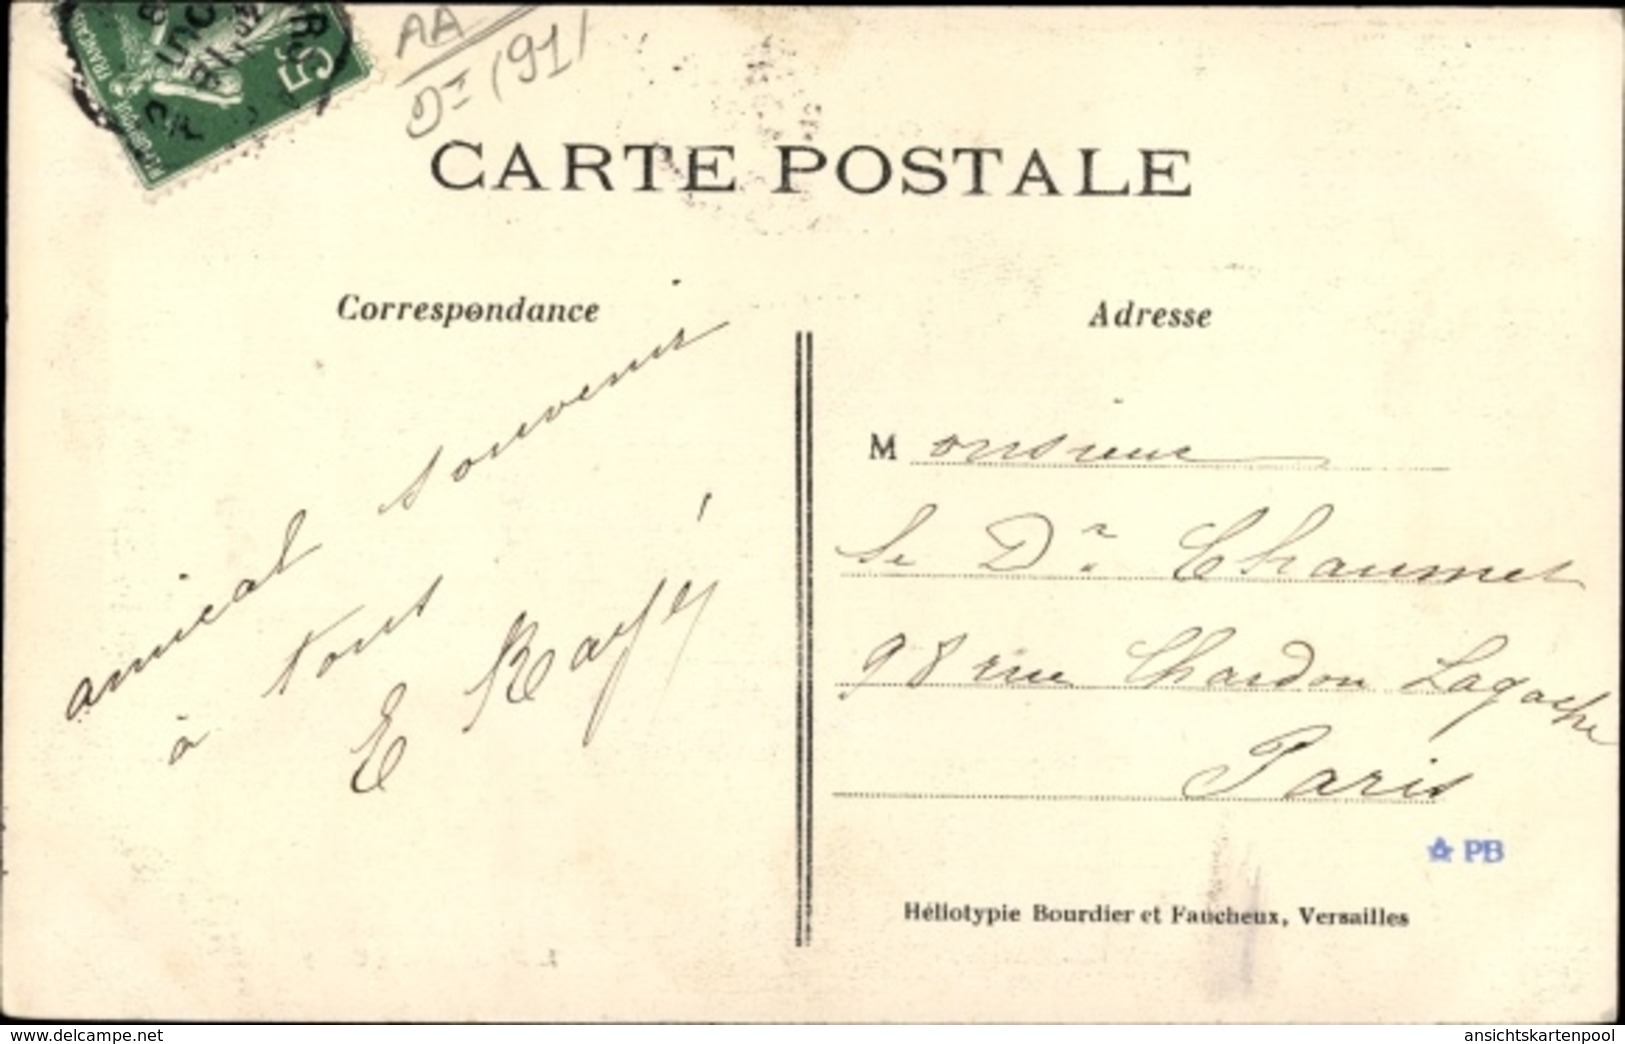 AA
1911
FRANCAISE
5c
CARTE POSTALE
Correspondance
Adresse
amical souvenir
à tous
E Rayé
Monsieur
le Dr Chaumet
98 rue Chardon Lagache
Paris
PB
Héliotypie Bourdier et Faucheux, Versailles
www.delcampe.net
ansichtskartenpool